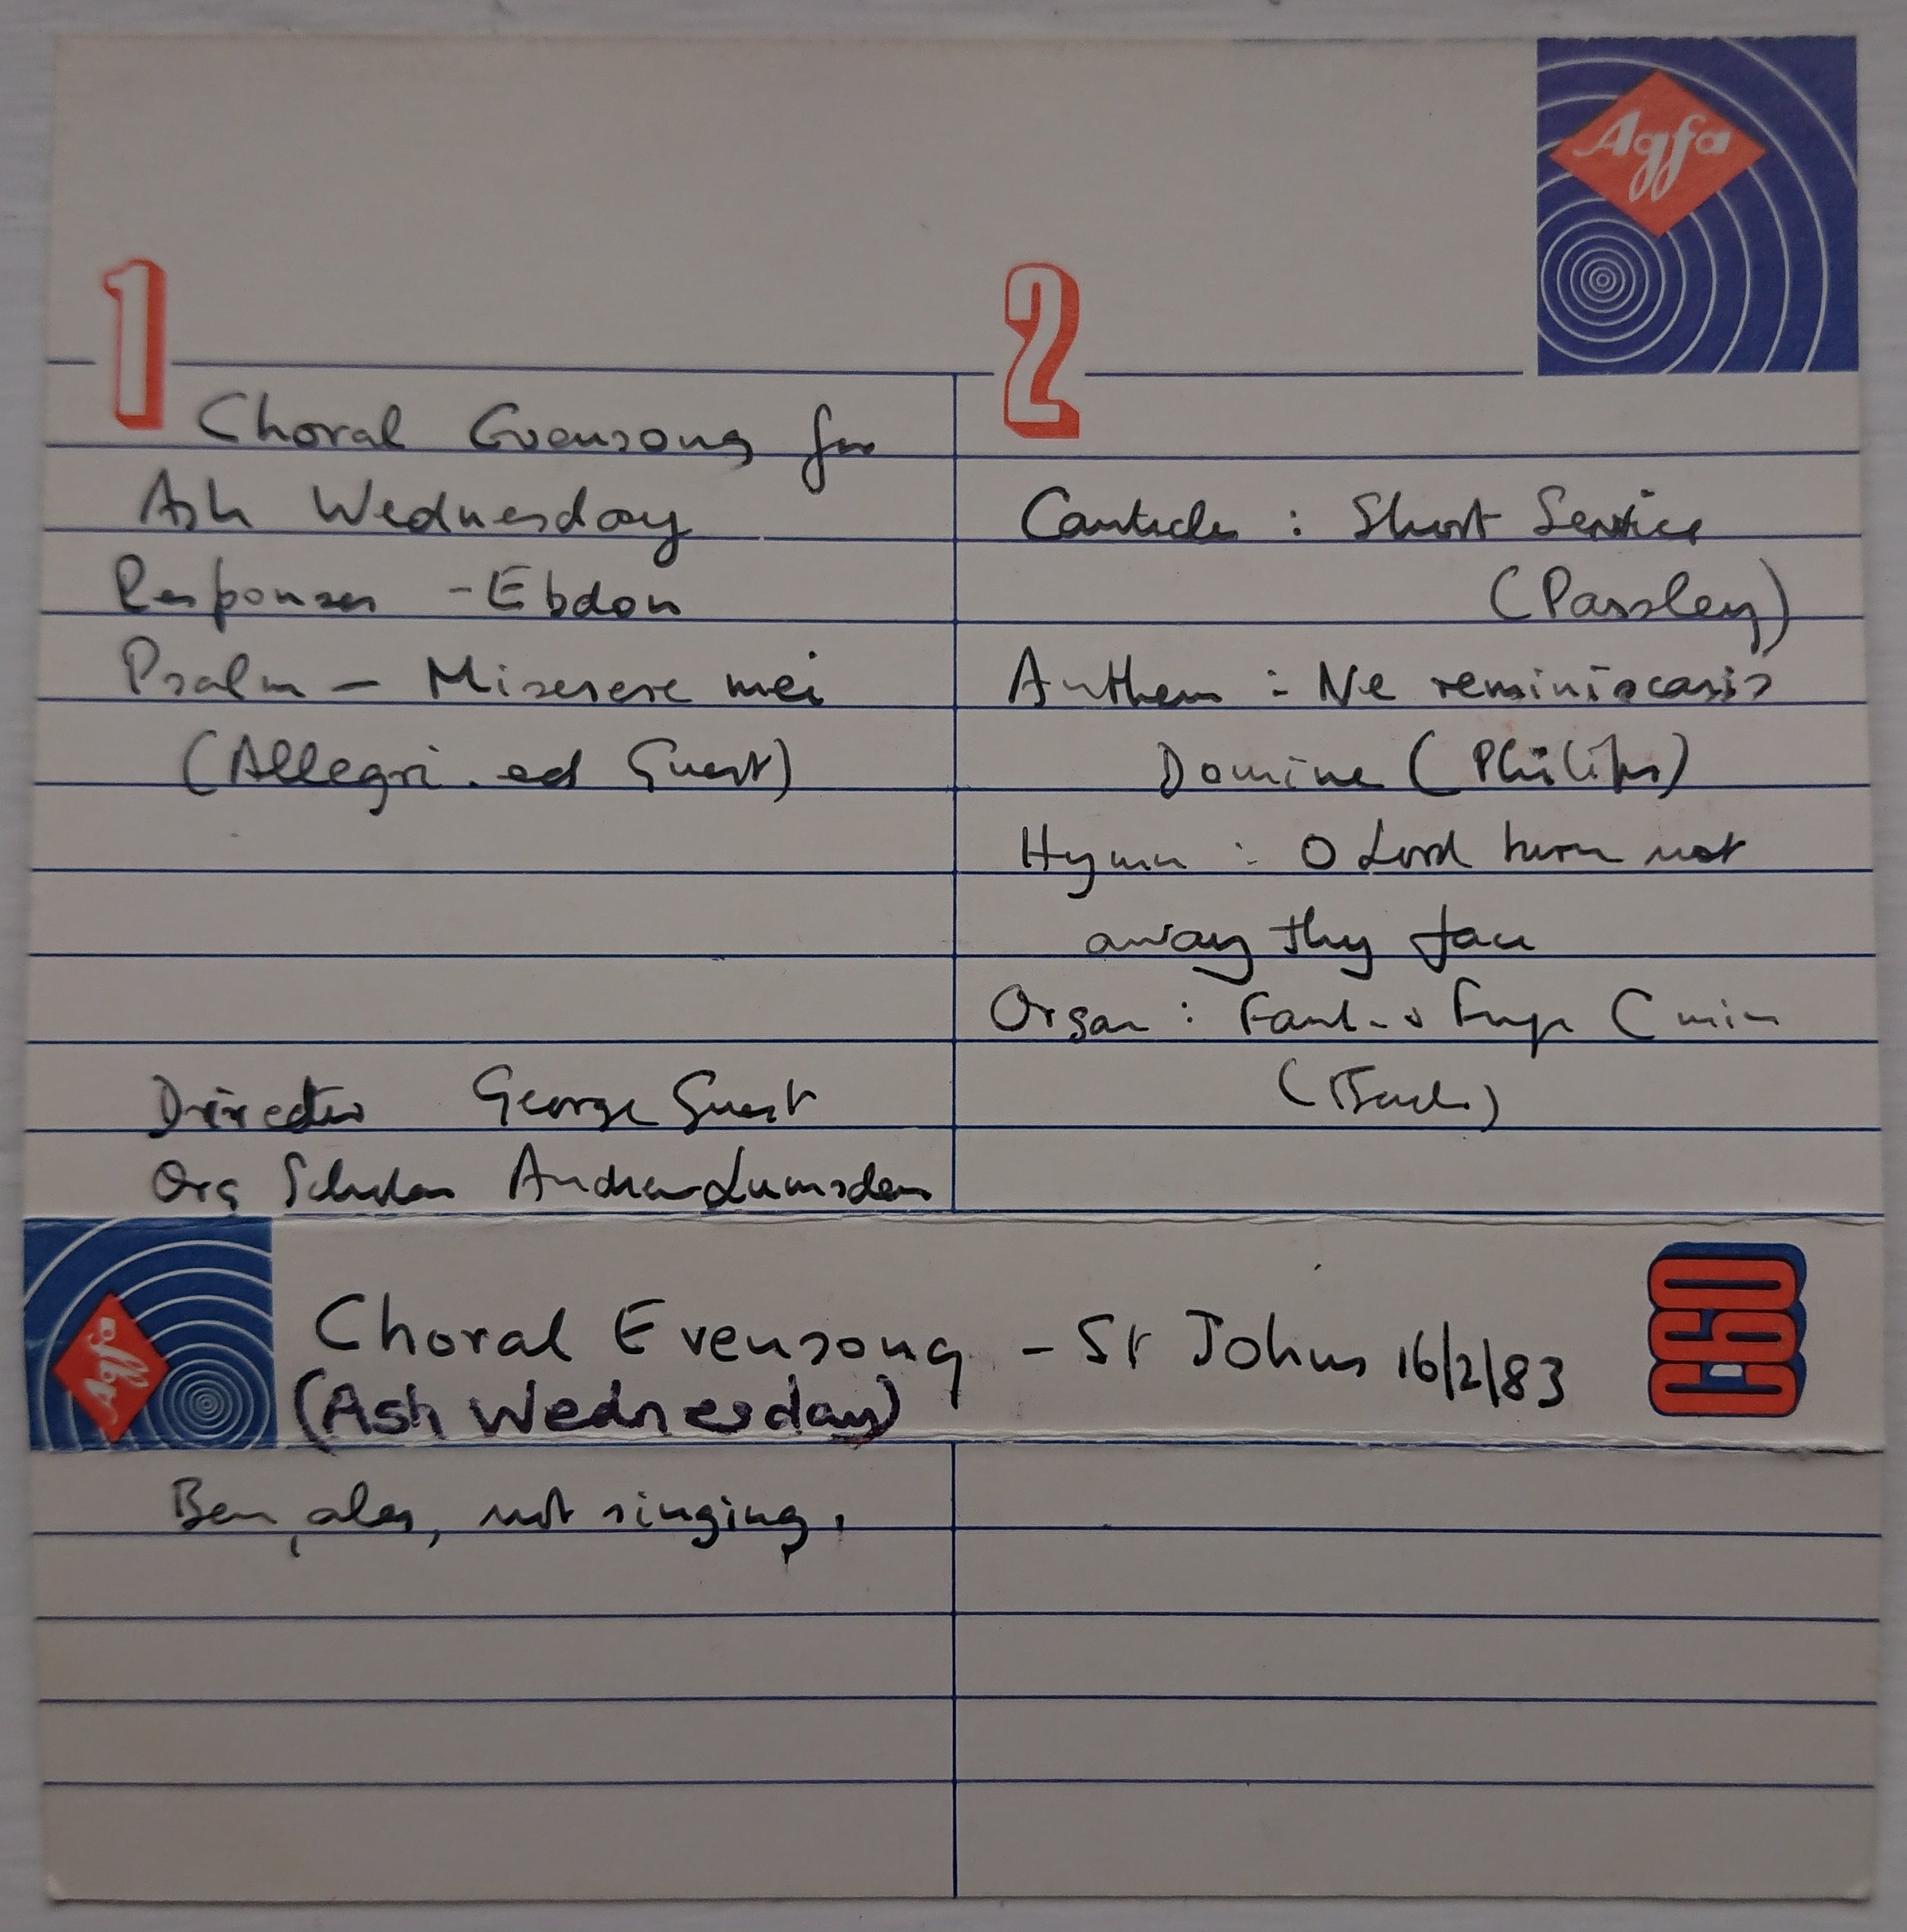 Agfa
1
Choral Evensong for
Ash Wednesday
Responses - Ebdon
Psalm - Miserere mei
(Allegri. ed Guest)
Director George Guest
Org Scholar Andrew Lumsden
2
Canticles : Short Service
(Parsley)
Anthem : Ne reminiscaris
Domine (Philips)
Hymn : O Lord turn not
away thy face
Organ : Fant. & Fuge C min
(Bach)
Agfa
Choral Evensong - St Johns 16/2/83
(Ash Wednesday)
C60
Ben, alas, not singing.